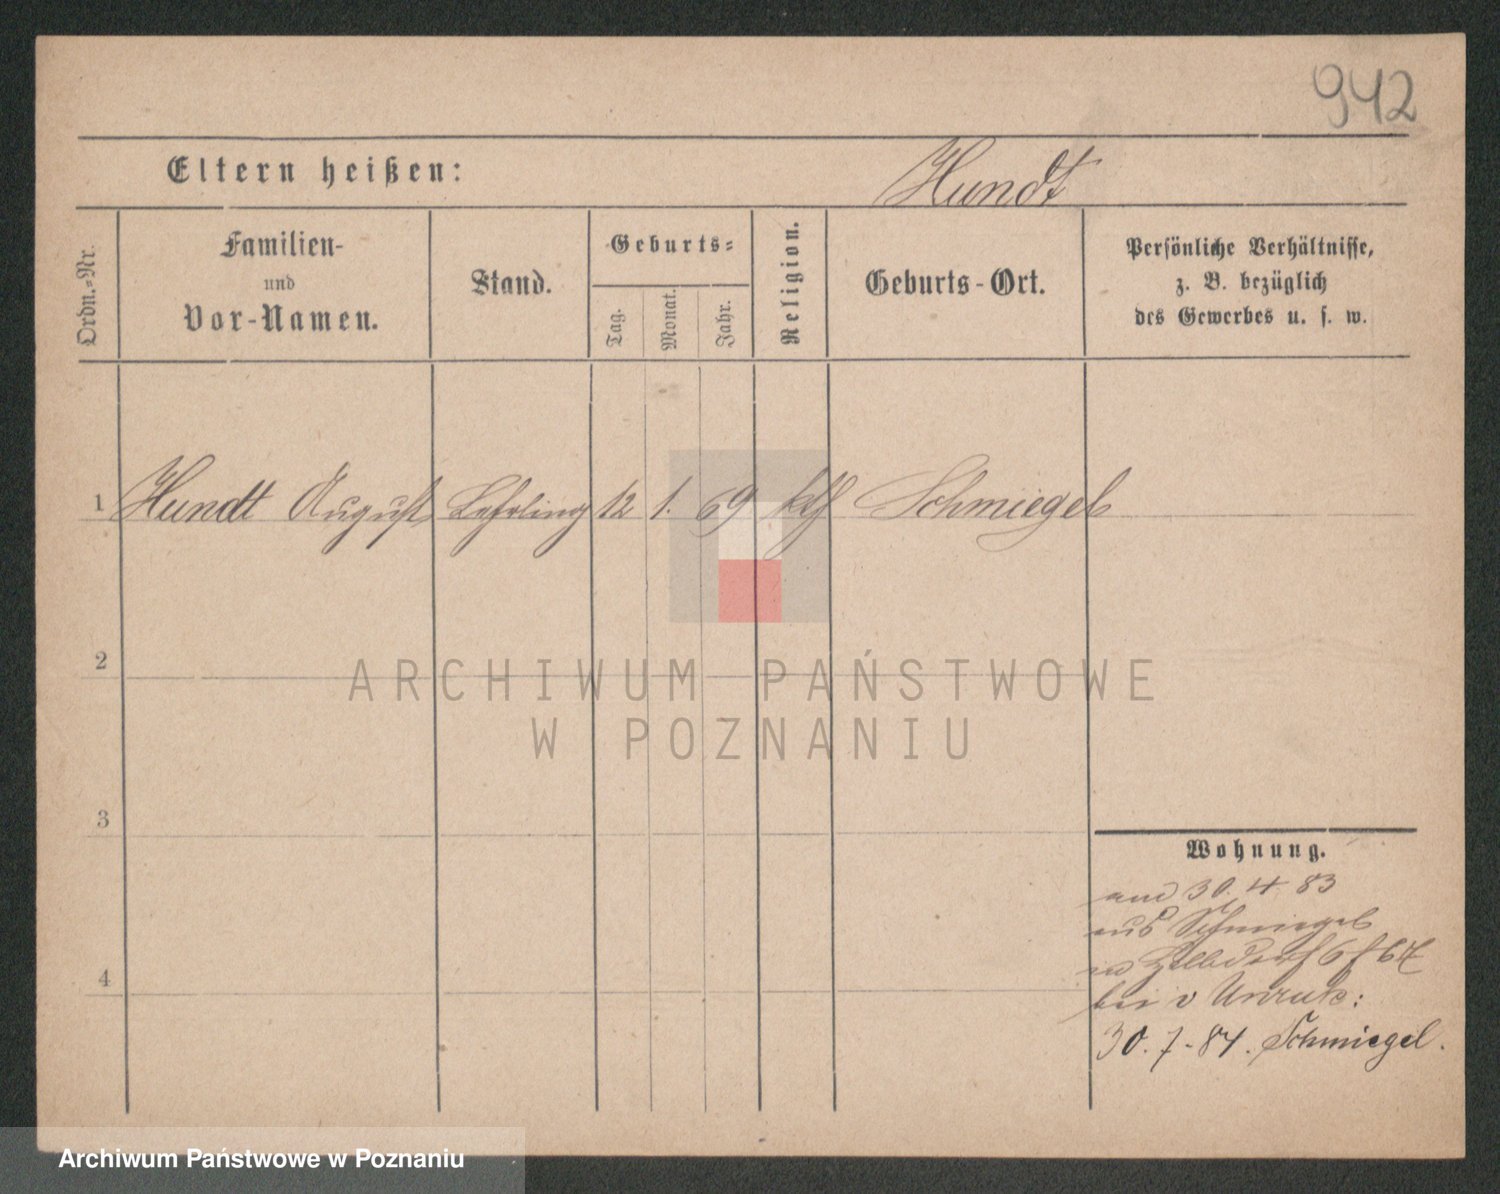 942
Eltern heißen: Hundt
Ordn.-Nr.
Familien-
und
Vor-Namen.
Stand.
Geburts-
Tag.
Monat.
Jahr.
Religion.
Geburts-Ort.
Persönliche Verhältnisse,
z. B. bezüglich
des Gewerbes u. s. w.
1 Hundt August Lehrling 12 1. 69 kth Schmiegel
2
3
4
ARCHIWUM PAŃSTWOWE
W POZNANIU
Wohnung.
am 30. 4 83
aus Schmiegel
in
bei v Unruh:
30. 7. 84. Schmiegel.
Archiwum Państwowe w Poznaniu